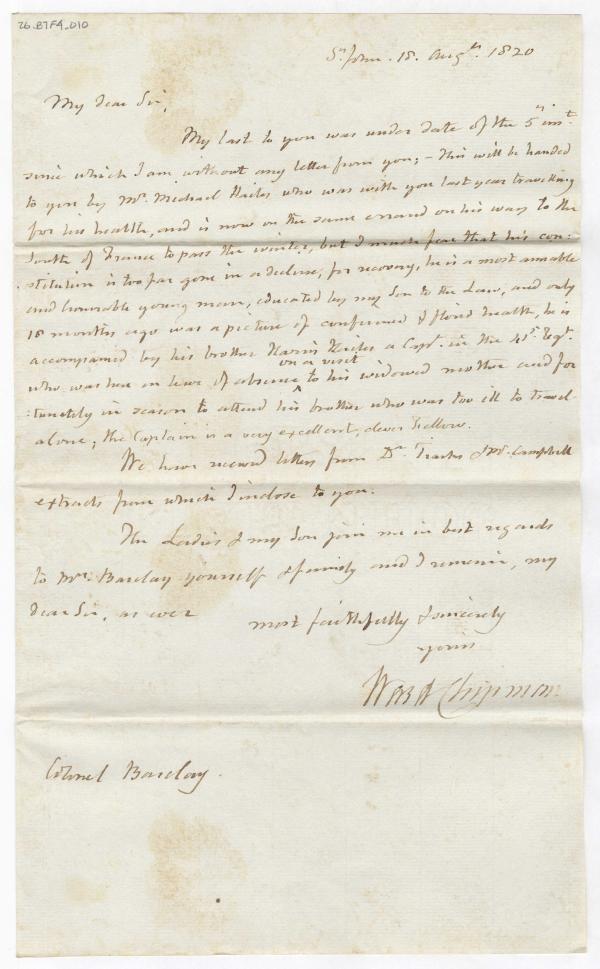 26.B7F4.010
St. John. 18. Augt. 1820
My dear Sir,
My last to you was under date of the 5th inst.
since which I am without any letter from you; – This will be handed
to you by Mr. Michael who was with you last year travelling
for his health, and is now on the same errand on his way to the
South of France to pass the winter, but I much fear that his con=
stitution is too far gone in a decline, for recovery, he is a most amiable
and honorable young man, educated by my Son to the Law, and only
18 months ago was a picture of confirmed & florid health, he is
accompanied by his brother Harris a Capt. in the Regt.
on a visit
who was here on leave of absence ^ to his widowed mother and for
:tunately in season to attend his brother who was too ill to travel
alone; the Captain is a very excellent, clever fellow.
We have received letters from Dr. Tiarks & Mr. Campbell
extracts from which I inclose to you.
The Ladies & my Son join me in best regards
to Mrs. Barclay yourself & family and I remain, my
dear Sir, as ever
most faithfully & sincerely
yours
Ward Chipman.
Colonel Barclay.